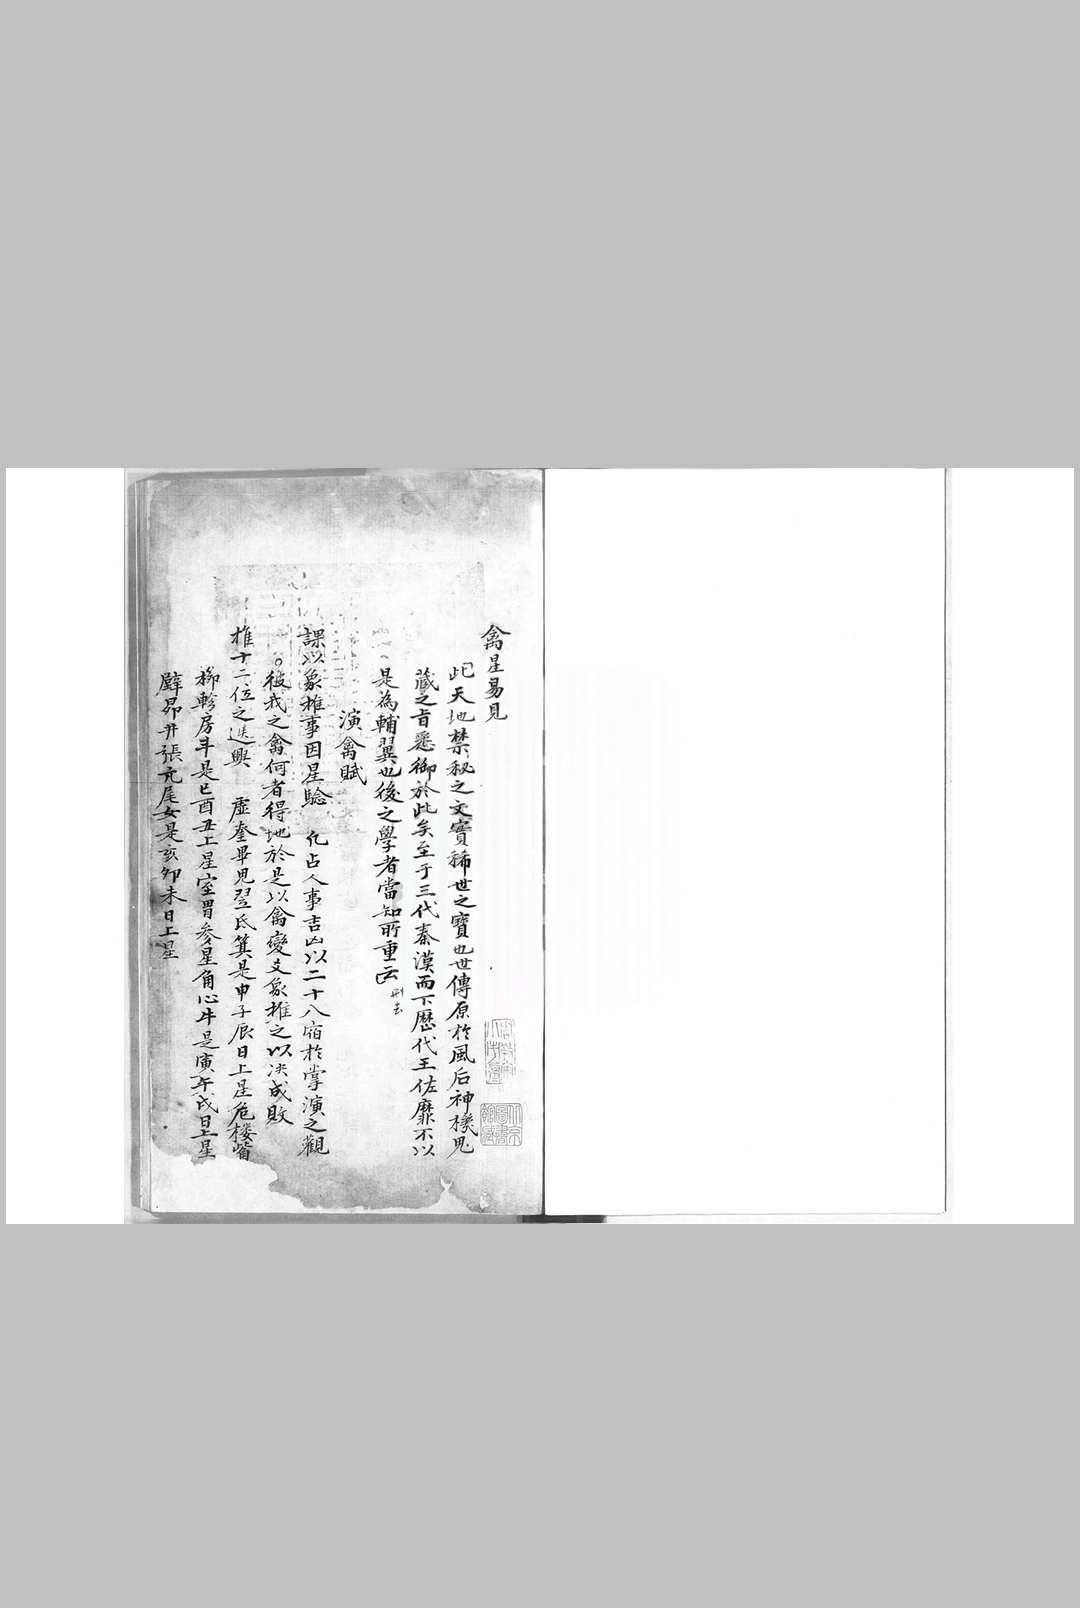 禽星易見
此天地禁秘之文實稀世之寶也世傳原於風后神機鬼
藏之旨悉御於此矣至于三代秦漢而下歷代王佐靡不以
是為輔翼也後之學者當知所重云
刪去
演禽賦
課以象推事因星驗 凡占人事吉凶以二十八宿於掌演之觀
彼我之禽何者得地於是以禽變爻象推之以决成敗
推十二位之迭興 虛奎畢鬼翌氐箕是申子辰日上星危樓觜
柳軫房斗是巳酉丑上星室胃參星角心牛是寅午戌日上星
壁昴井張亢尾女是亥卯未日上星